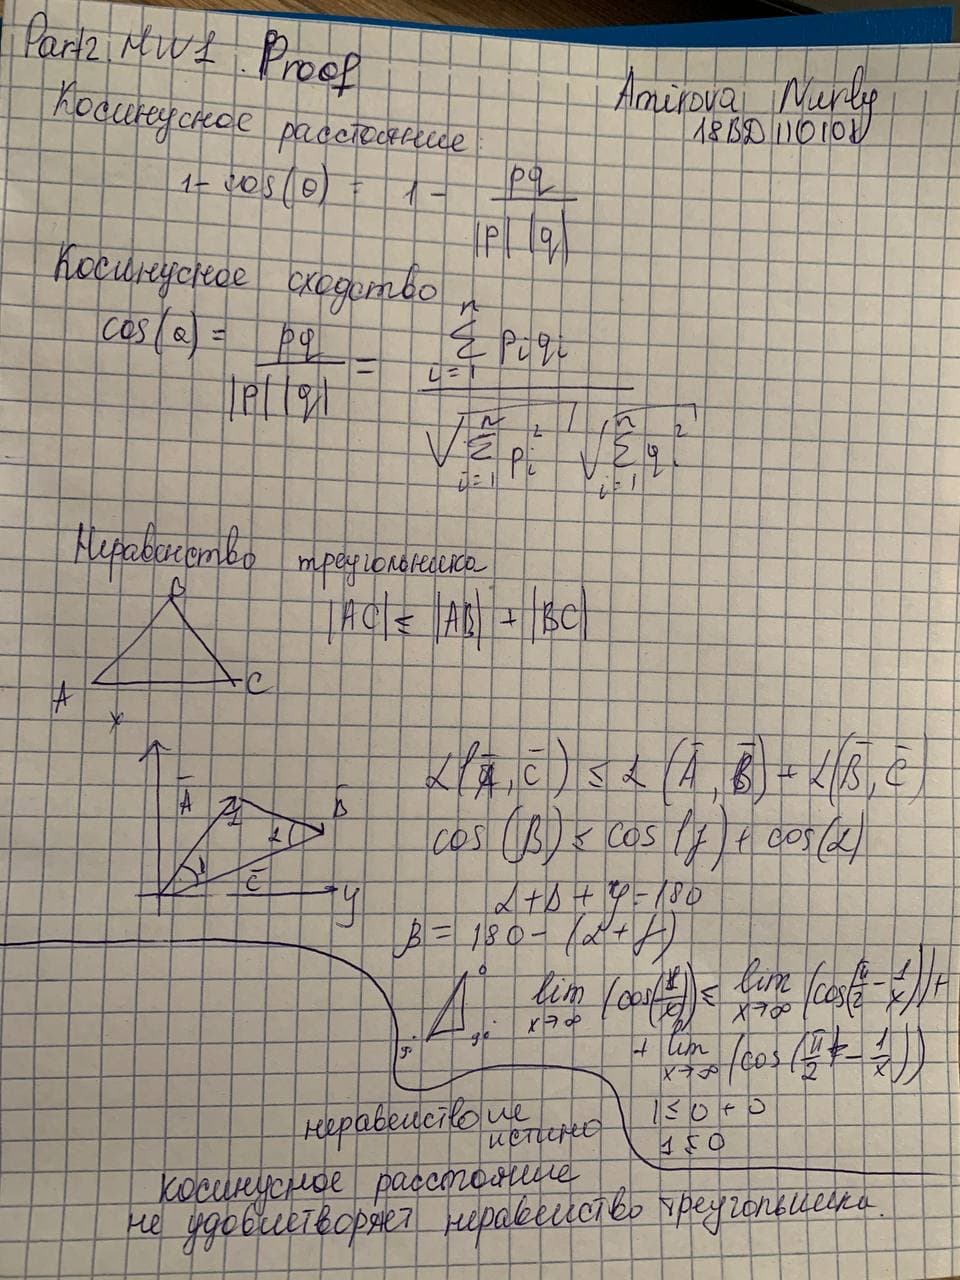 Part2. HW1. Proof
Amirova Nurly
18BD110108
Косинусное расстояние:
1 - cos(θ) = 1 - pq / |p| |q|
Косинусное сходство
cos(θ) = pq / |p| |q| = ∑ i=1 n pi qi / √∑ i=1 n pi² √∑ i=1 n qi²
Неравенство треугольника
B
|AC| ≤ |AB| + |BC|
A C
x
Ā B̄ C̄ y
∠(Ā, C̄) ≤ ∠(Ā, B̄) + ∠(B̄, C̄)
cos(β) ≤ cos(γ) + cos(α)
α + β + γ = 180
β = 180 - (α + γ)
lim x→∞ (cos(1/x)) ≤ lim x→∞ (cos(π/2 - 1/x)) +
+ lim x→∞ (cos(π/2 - 1/x))
неравенство не
истино
1 ≤ 0 + 0
1 ≤ 0
косинусное расстояние
не удовлетворяет неравенство треугольника.